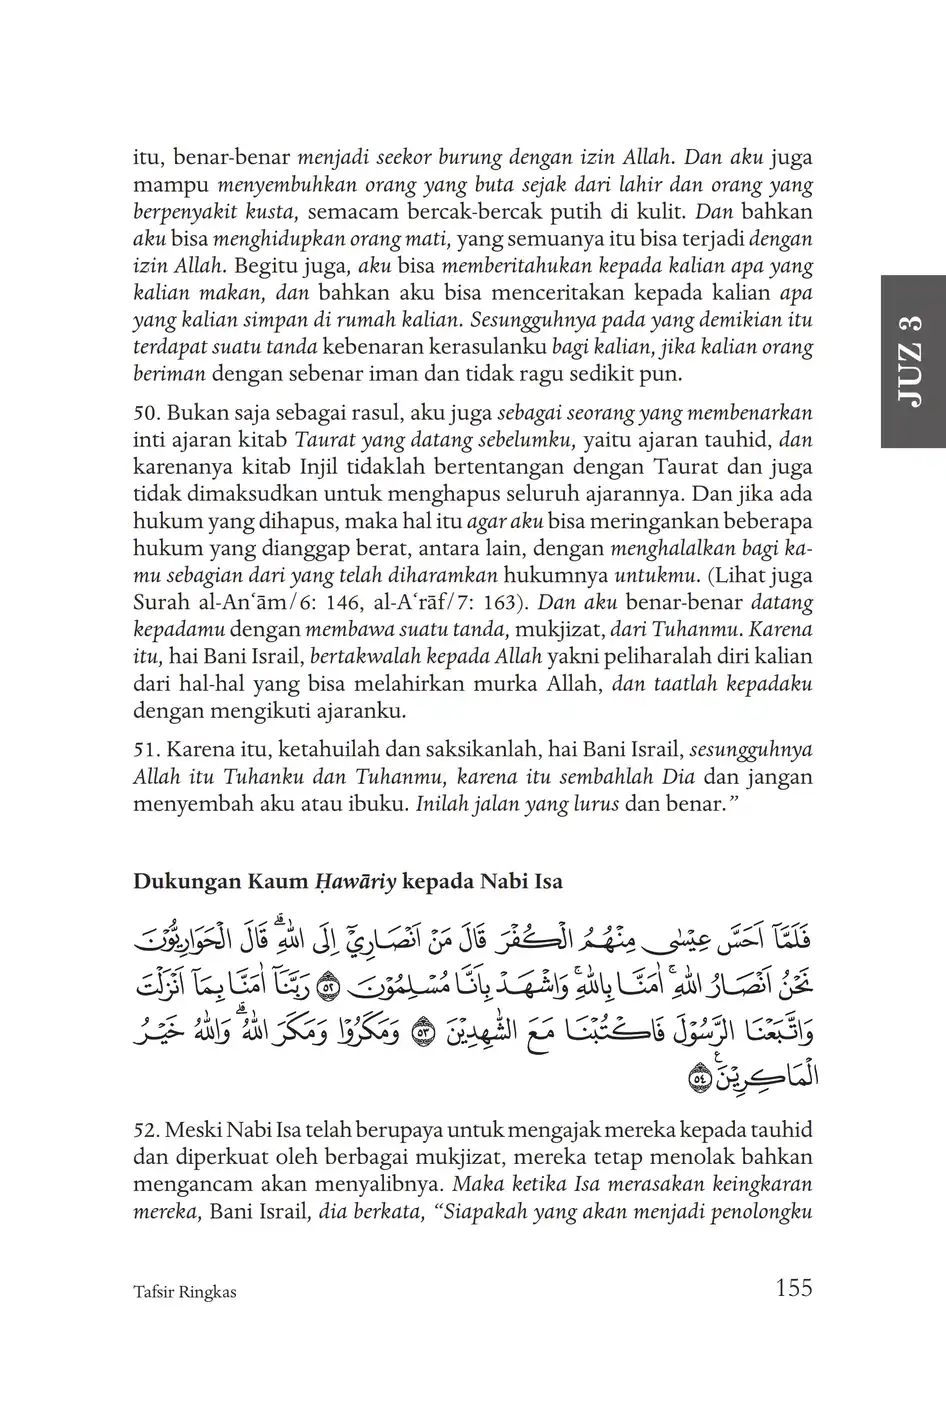 itu, benar-benar menjadi seekor burung dengan izin Allah. Dan aku juga
mampu menyembuhkan orang yang buta sejak dari lahir dan orang yang
berpenyakit kusta, semacam bercak-bercak putih di kulit. Dan bahkan
aku bisa menghidupkan orang mati, yang semuanya itu bisa terjadi dengan
izin Allah. Begitu juga, aku bisa memberitahukan kepada kalian apa yang
kalian makan, dan bahkan aku bisa menceritakan kepada kalian apa
yang kalian simpan di rumah kalian. Sesungguhnya pada yang demikian itu
terdapat suatu tanda kebenaran kerasulanku bagi kalian, jika kalian orang
beriman dengan sebenar iman dan tidak ragu sedikit pun.
50. Bukan saja sebagai rasul, aku juga sebagai seorang yang membenarkan
inti ajaran kitab Taurat yang datang sebelumku, yaitu ajaran tauhid, dan
karenanya kitab Injil tidaklah bertentangan dengan Taurat dan juga
tidak dimaksudkan untuk menghapus seluruh ajarannya. Dan jika ada
hukum yang dihapus, maka hal itu agar aku bisa meringankan beberapa
hukum yang dianggap berat, antara lain, dengan menghalalkan bagi ka-
mu sebagian dari yang telah diharamkan hukumnya untukmu. (Lihat juga
Surah al-An‘ām/6: 146, al-A‘rāf/7: 163). Dan aku benar-benar datang
kepadamu dengan membawa suatu tanda, mukjizat, dari Tuhanmu. Karena
itu, hai Bani Israil, bertakwalah kepada Allah yakni peliharalah diri kalian
dari hal-hal yang bisa melahirkan murka Allah, dan taatlah kepadaku
dengan mengikuti ajaranku.
51. Karena itu, ketahuilah dan saksikanlah, hai Bani Israil, sesungguhnya
Allah itu Tuhanku dan Tuhanmu, karena itu sembahlah Dia dan jangan
menyembah aku atau ibuku. Inilah jalan yang lurus dan benar.”
Dukungan Kaum Ḥawāriy kepada Nabi Isa
فَلَمَّآ اَحَسَّ عِيْسٰى مِنْهُمُ الْكُفْرَ قَالَ مَنْ اَنْصَارِيْٓ اِلَى اللّٰهِ ۗ قَالَ الْحَوَارِيُّوْنَ
نَحْنُ اَنْصَارُ اللّٰهِ ۚ اٰمَنَّا بِاللّٰهِ ۚ وَاشْهَدْ بِاَنَّا مُسْلِمُوْنَ ۝٥٢ رَبَّنَآ اٰمَنَّا بِمَآ اَنْزَلْتَ
وَاتَّبَعْنَا الرَّسُوْلَ فَاكْتُبْنَا مَعَ الشّٰهِدِيْنَ ۝٥٣ وَمَكَرُوْا وَمَكَرَ اللّٰهُ ۗ وَاللّٰهُ خَيْرُ
الْمَاكِرِيْنَ ࣖ ۝٥٤
52. Meski Nabi Isa telah berupaya untuk mengajak mereka kepada tauhid
dan diperkuat oleh berbagai mukjizat, mereka tetap menolak bahkan
mengancam akan menyalibnya. Maka ketika Isa merasakan keingkaran
mereka, Bani Israil, dia berkata, “Siapakah yang akan menjadi penolongku
Tafsir Ringkas
155
JUZ 3